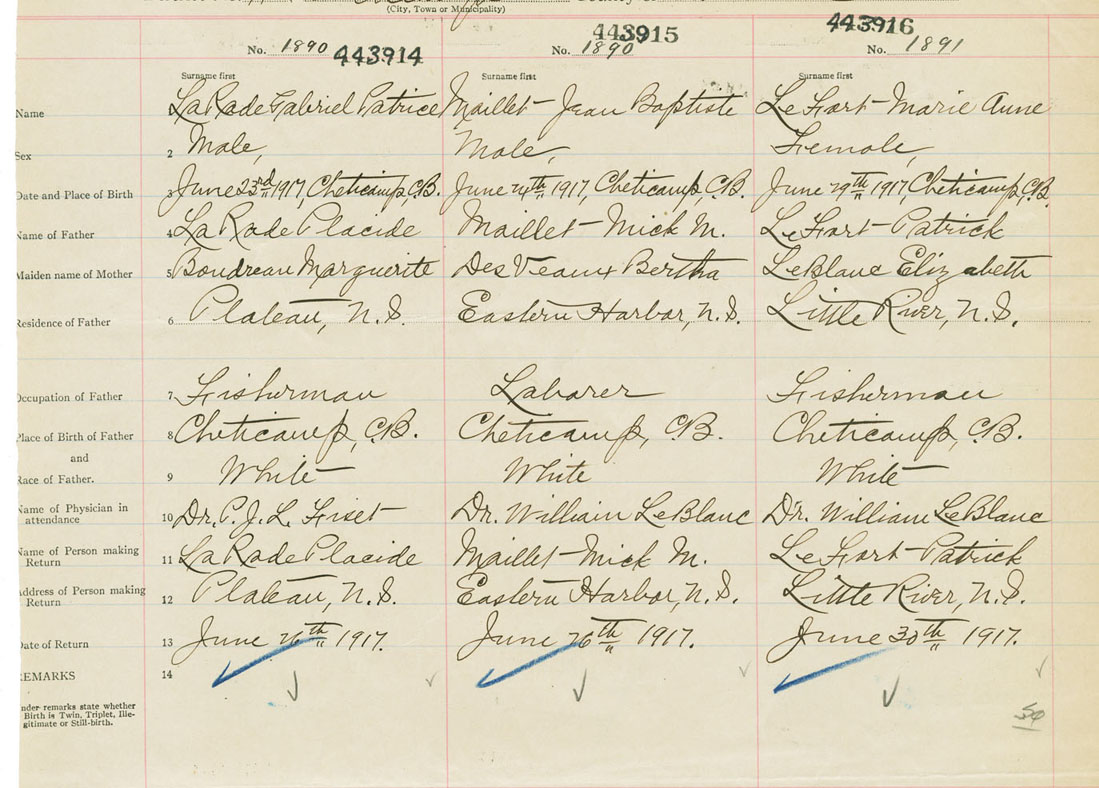 (City, Town or Municipality)
No. 1890 443914
443915
No. 1890
443916
No. 1891
Surname first Surname first Surname first
Name 1 LaRade Gabriel Patrice Maillet - Jean Baptiste LeFort - Marie Anne
Sex 2 Male, Male, Female,
Date and Place of Birth 3 June 23rd 1917, Cheticamp, C.B. June 24th 1917, Cheticamp, C.B. June 29th 1917, Cheticamp, C.B.
Name of Father 4 LaRade Placide Maillet - Mick M. LeFort - Patrick
Maiden name of Mother 5 Boudreau Marguerite DesVeaux Bertha LeBlanc Elizabeth
Residence of Father 6 Plateau, N.S. Eastern Harbor, N.S. Little River, N.S.
Occupation of Father 7 Fisherman Laborer Fisherman
Place of Birth of Father 8 Cheticamp, C.B. Cheticamp, C.B. Cheticamp, C.B.
and
Race of Father. 9 White White White
Name of Physician in
attendance 10 Dr. P.J.L. Fiset Dr. William LeBlanc Dr. William LeBlanc
Name of Person making
Return 11 LaRade Placide Maillet - Mick M. LeFort - Patrick
Address of Person making
Return 12 Plateau, N.S. Eastern Harbor, N.S. Little River, N.S.
Date of Return 13 June 26th 1917. June 26th 1917. June 30th 1917.
REMARKS 14
Under remarks state whether
Birth is Twin, Triplet, Ille-
gitimate or Still-birth.